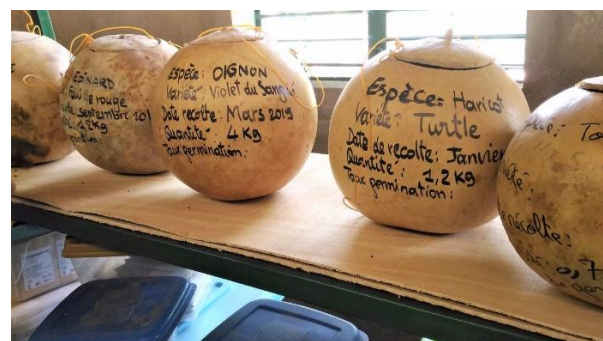 EPINARD
Feuille rouge
septembre 201
1,2 Kg
Espèce: OIGNON
Variété: Violet du
Date recolte: Mars 2019
Quantité: 4 Kg
Taux germination:
Espèce: Haricot
Variété: Turtle
Date de recolte: Janvier
Quantité: 1,2 Kg
Taux germination:
To
recolte:
0,7